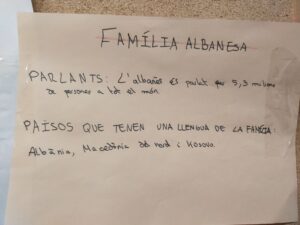 FAMÍLIA ALBANESA
PARLANTS: L'albanès és parlat per 5,3 milions
de persones a tot el món.
PAÏSOS QUE TENEN UNA LLENGUA DE LA FAMÍLIA:
Albània, Macedònia del nord i Kosovo